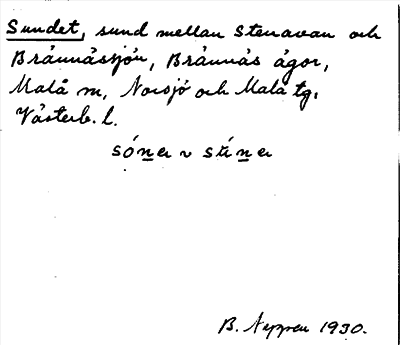 Sundet, sund mellan Stenavan och
Brännässjön, Brännäs ägor,
Malå m, Norsjö och Malå tg,
Västerb. l.
sóner v stíner
1930.